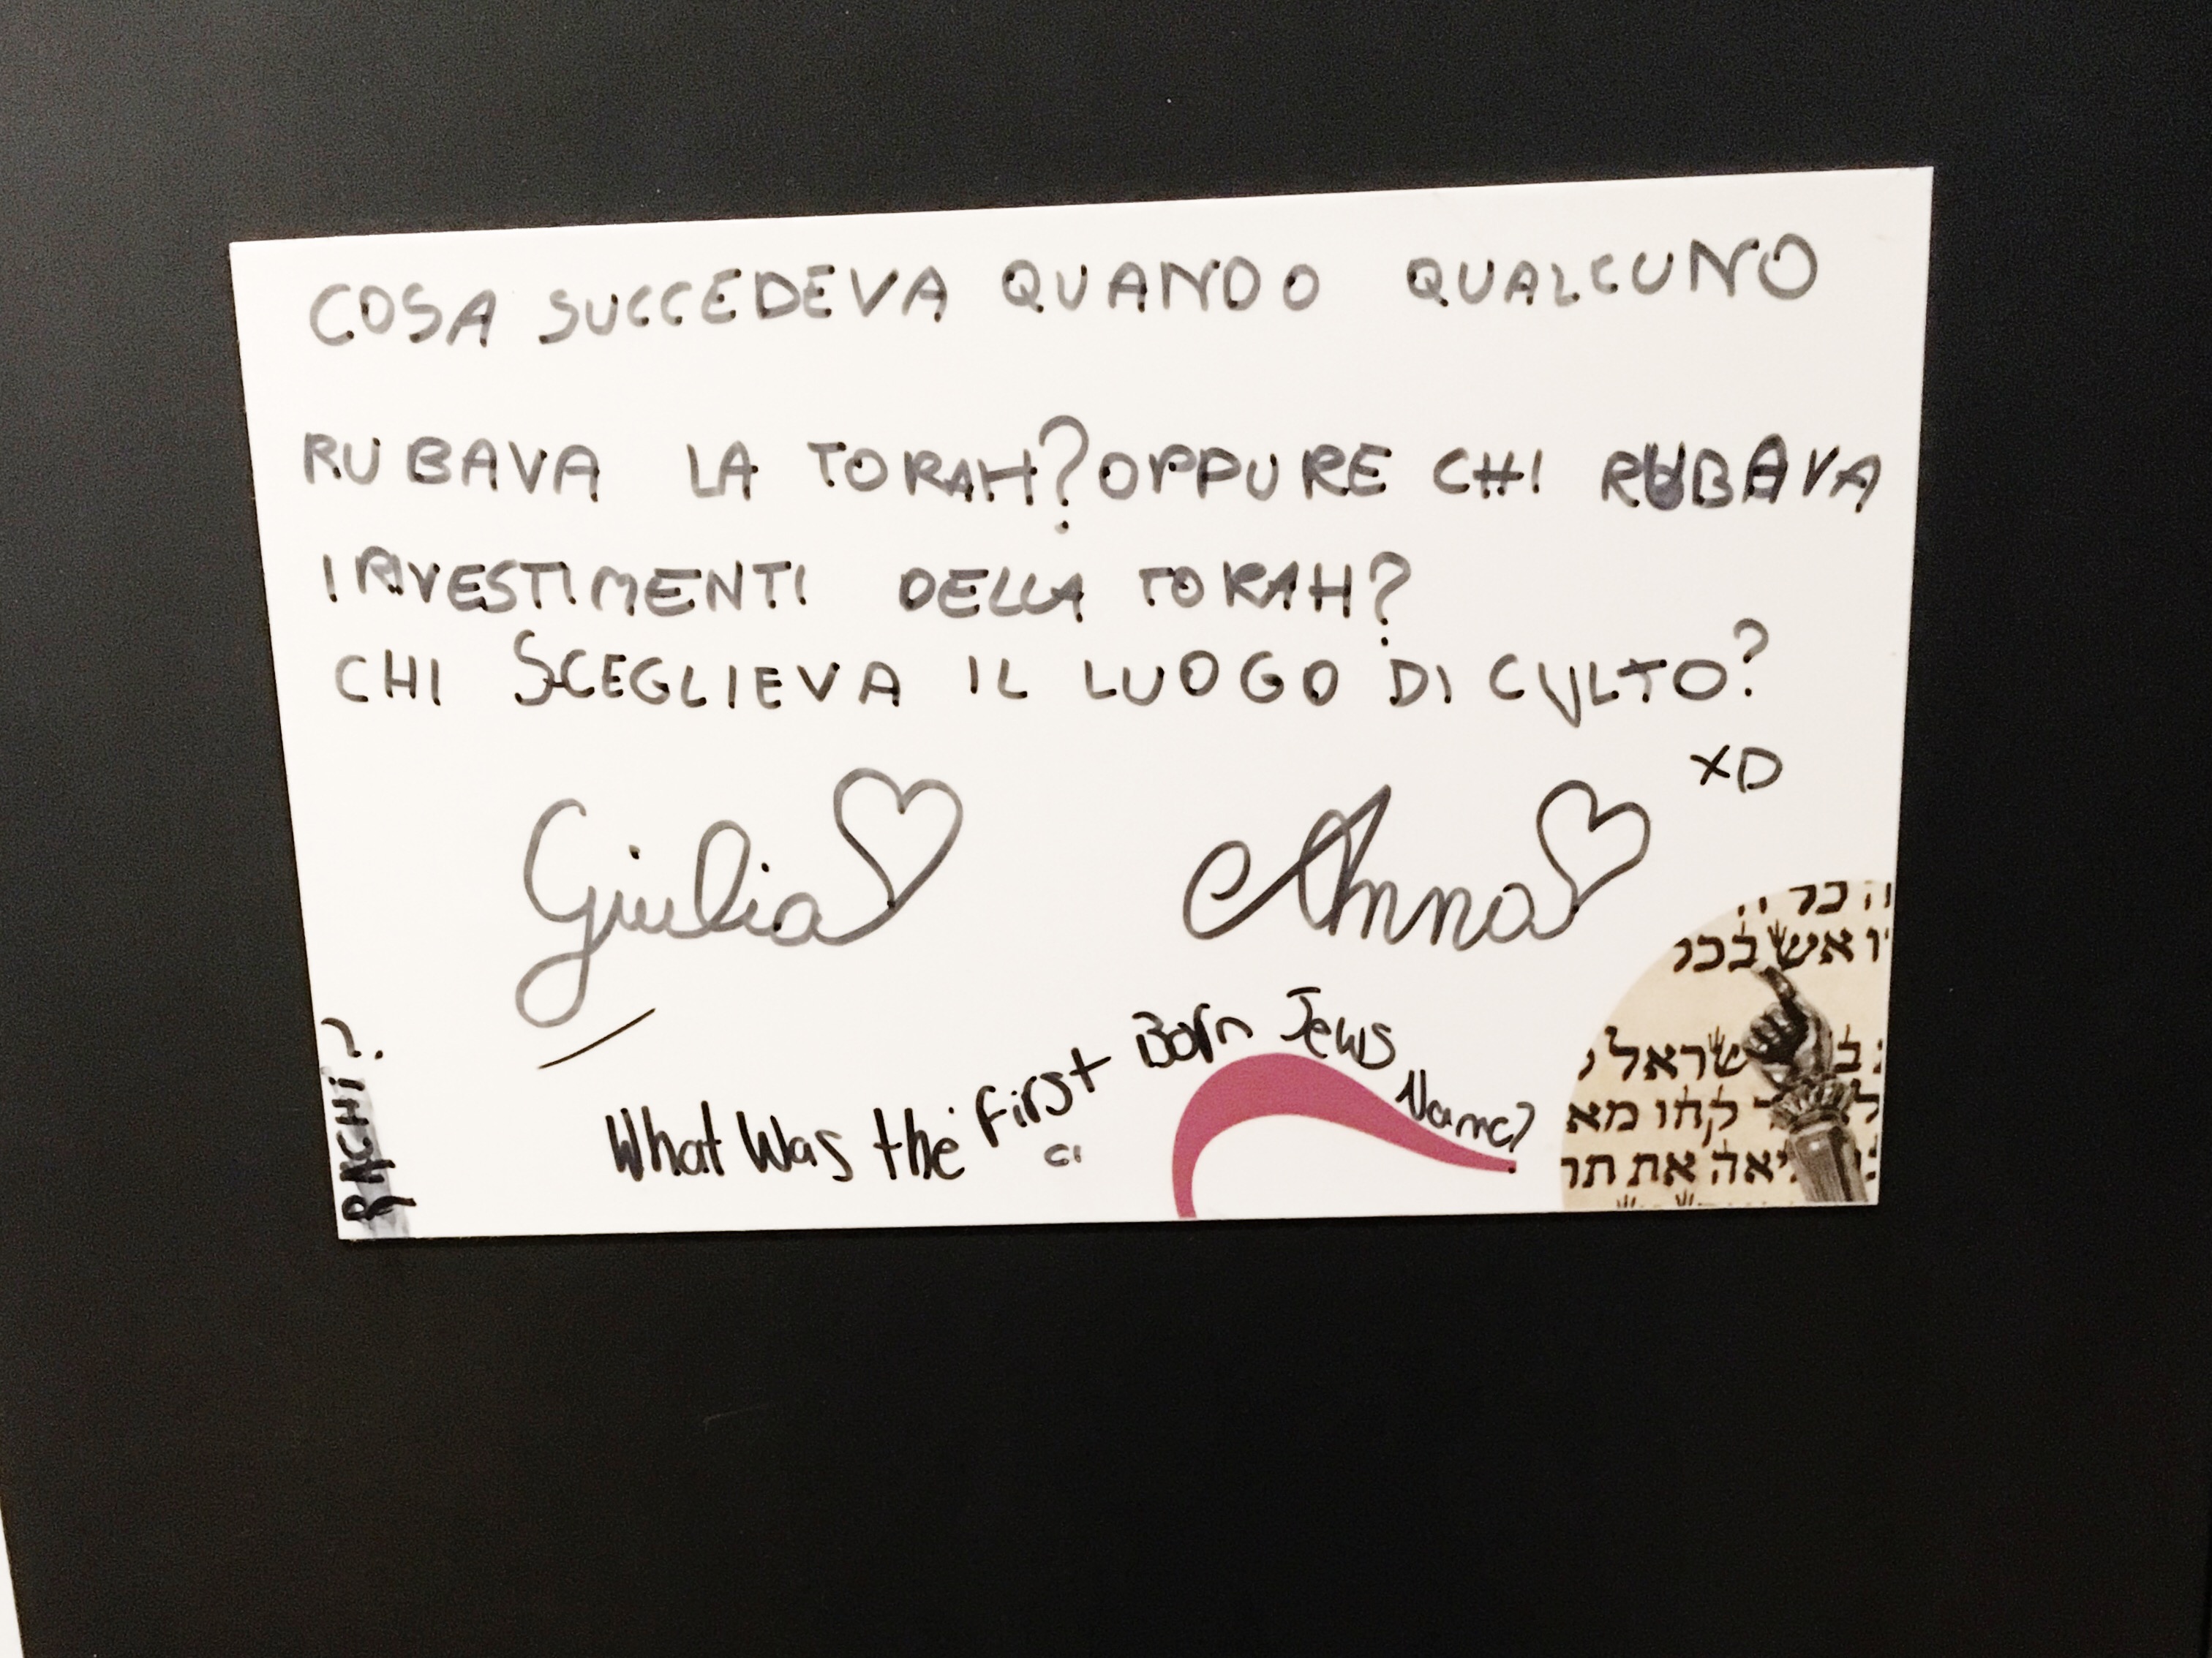 COSA SUCCEDEVA QUANDO QUALCUNO
RUBAVA LA TORAH? OPPURE CHI RUBAVA
I RIVESTIMENTI DELLA TORAH?
CHI SCEGLIEVA IL LUOGO DI CULTO?
XD
Giulia Anna
What Was the First Born Jews Name?
כל
אש בכל
שראל
קחו מא
יאה את תר